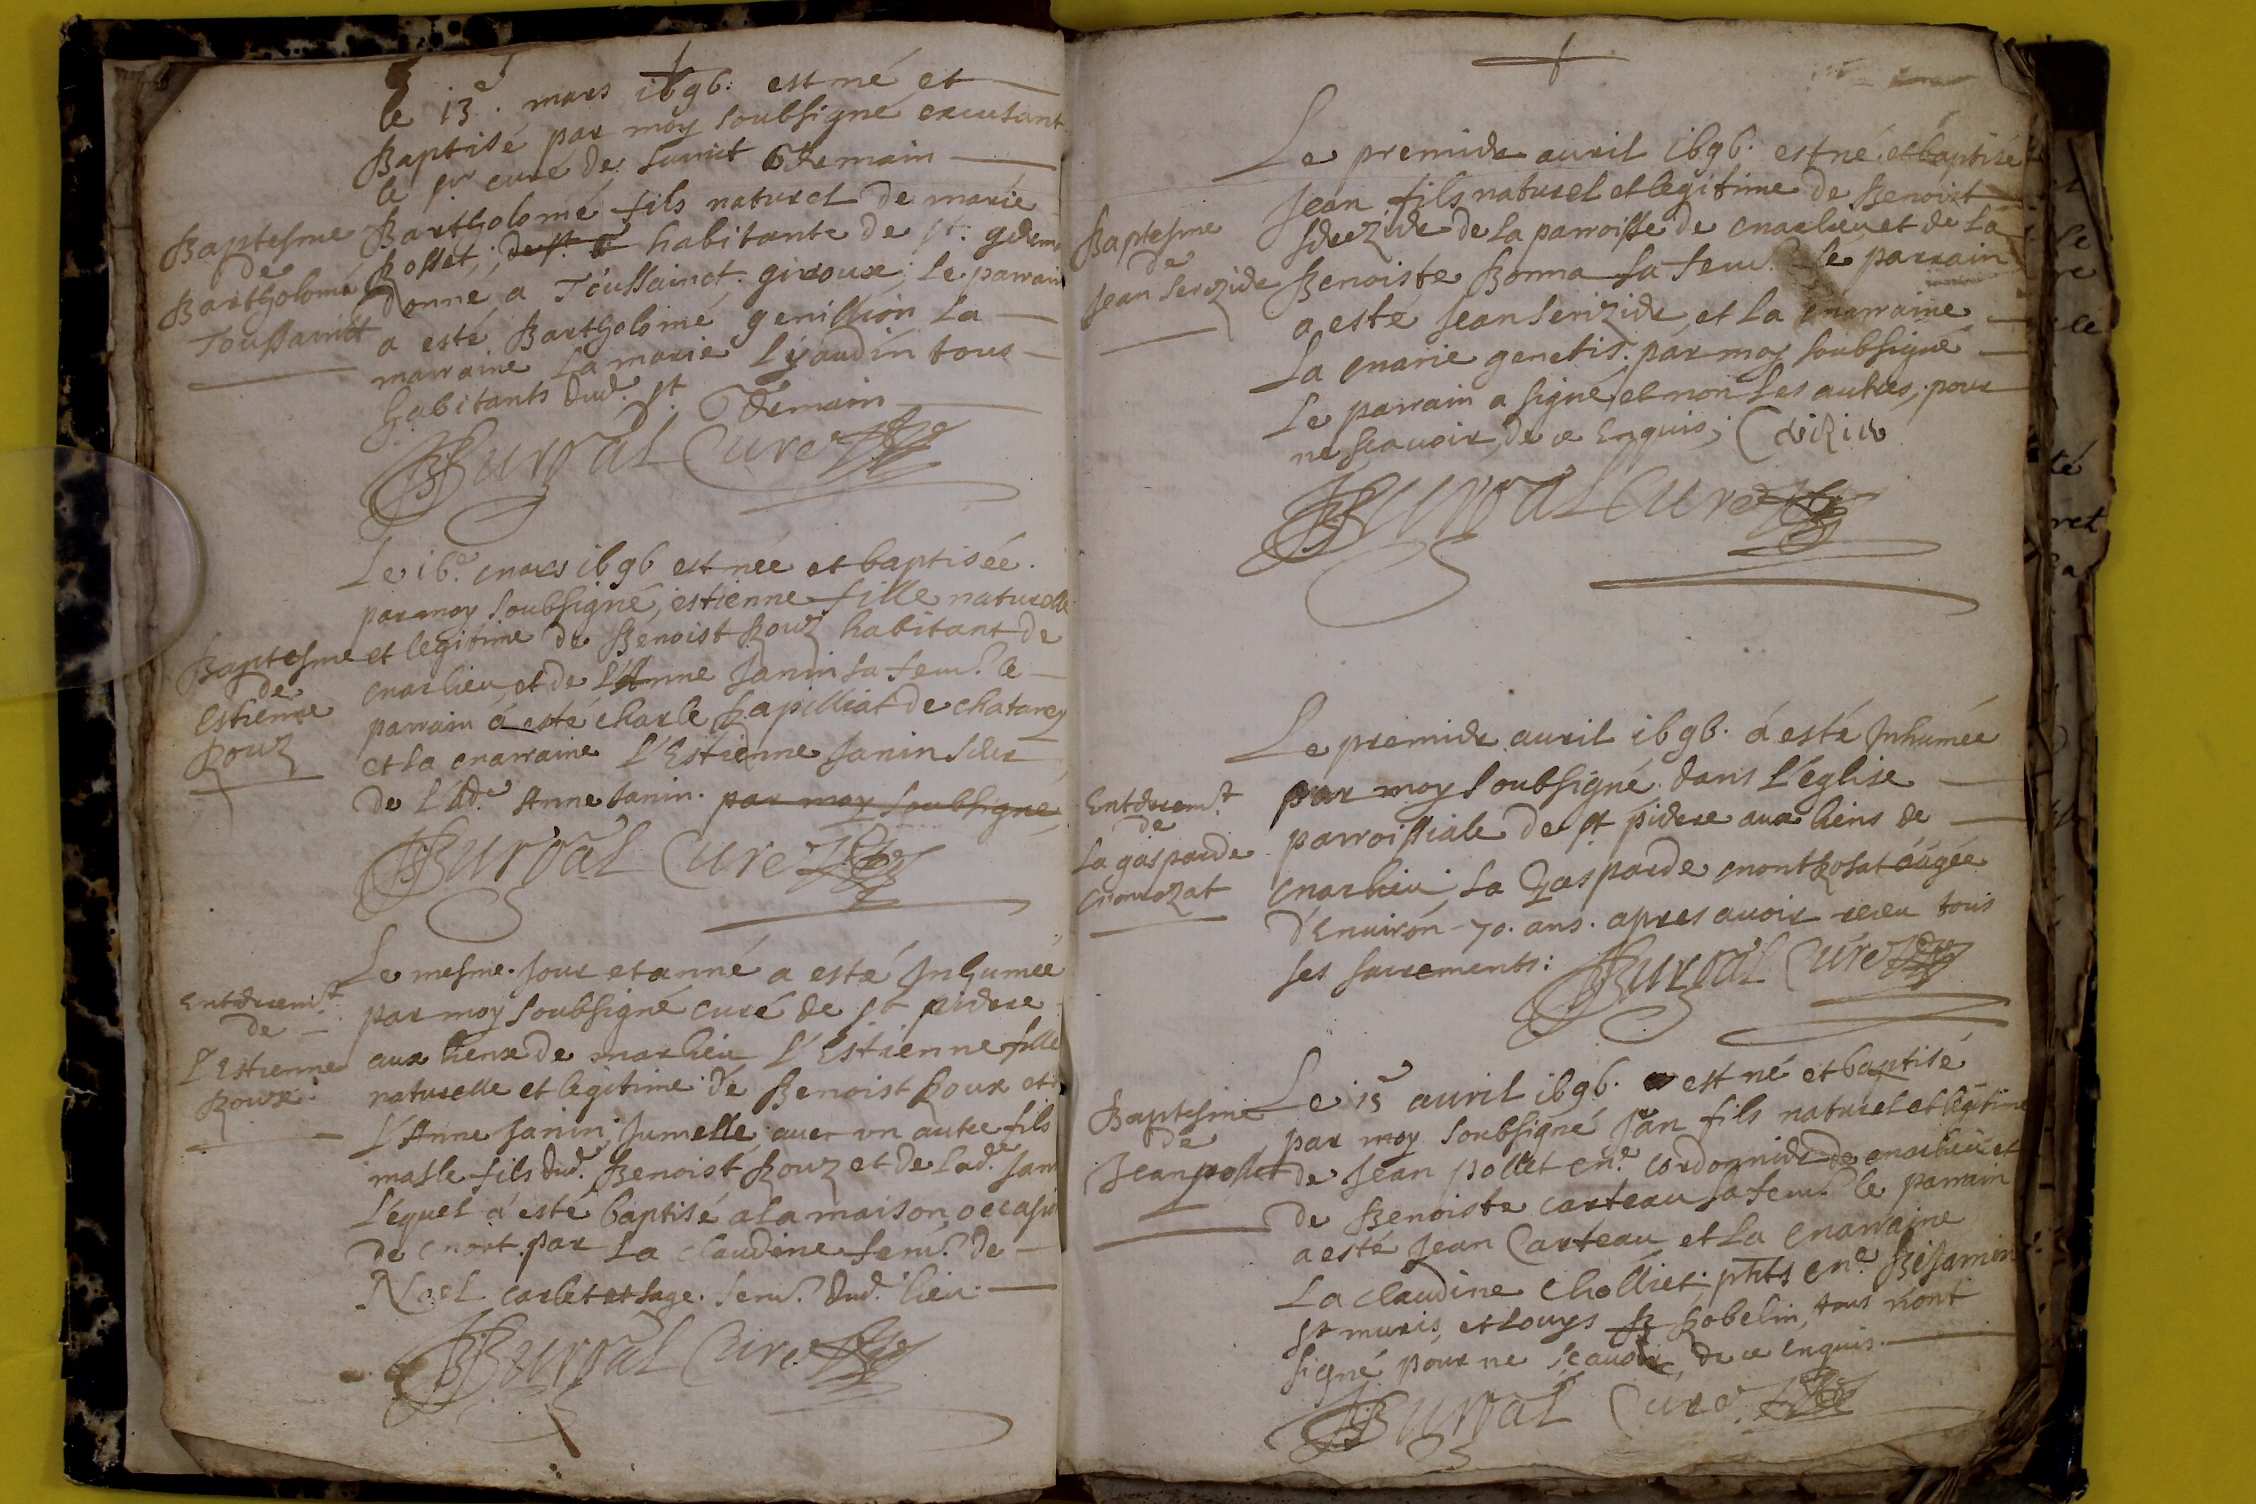 le 13e. mars 1696: est né et
Baptisé par moy soubsigné excusant
le sr curé de sainct Germain
Bartholomé fils naturel de marie
Rosset, habitante de st. germ
donné a Toussainct giroux; le parrain
a esté Bartholomé genillion La
marraine La marie Lyaudin tous
habitants dud. st Germain
Baptesme
de
Bartholomé
Toussainct
Burval Curé
Le 16e mars 1696 est née et baptisée.
par moy soubsigné, estienne fille naturelle
et legitime de Benoist Rouz habitant de
marlieu et de L'Anne Janin sa fem. le
parrain à esté charle Papilliat de chataney
et la marraine L'Estienne Janin sœur
de L'ad.e Anne Janin. par moy soubsigné,
Baptesme
de
Estienne
Rouz
Burval Curé
Le mesme Jour et anné a esté Inhumée
par moy soubsigné curé de st pierre
aux liens de marlieu L'Estienne fille
naturelle et legitime de Benoist Roux et
L'Anne Janin; Jumelle avec un autre fils
masle fils dud. Benoist Rouz et de Lad.e Jani
Lequel à esté baptisé a la maison occasion
de mort par La claudine fem. de
Noel carlet et sage fem. dud. lieu
Enterrem.t
de
L'Estienne
Roux
Burval Curé
Le premier avril 1696. est né et baptisé
Jean fils naturel et legitime de Benoist
Serezier de La parroisse de marlieu et de La
Benoiste Bonna sa fem. le parrain
a esté Jean Serizier et La marraine
La marie genetis. par moy soubsigné
Le parrain a signé et non Les autres, pour
ne sçavoir, de ce Enquis;
Baptesme
de
Jean Serezier
Burval Curé
Le premier avril 1696. à esté Inhumée
par moy soubsigné dans L'eglise
parroissiale de st pierre aux liens de
marlieu, La gasparde montrosat aagée
d'Environ 70. ans. apres avoir receu tous
ses sacrements:
Enterrem.t
de
La gasparde
monrozat
Burval Curé
Le 15e avril 1696. est né et baptisé
par moy soubsigné Jan fils naturel et legitime
de Jean pollet me. cordonnier de marlieu et
de Benoiste carteau sa fem. le parrain
a esté Jean Carteau et La marraine
La claudine Cholliet; pnts me. Bejamin
st muris, et Louys Robelin, tous n'ont
signé pour ne sçavoir, de ce enquis.
Baptesme
de
Jean pollet
Burval Curé